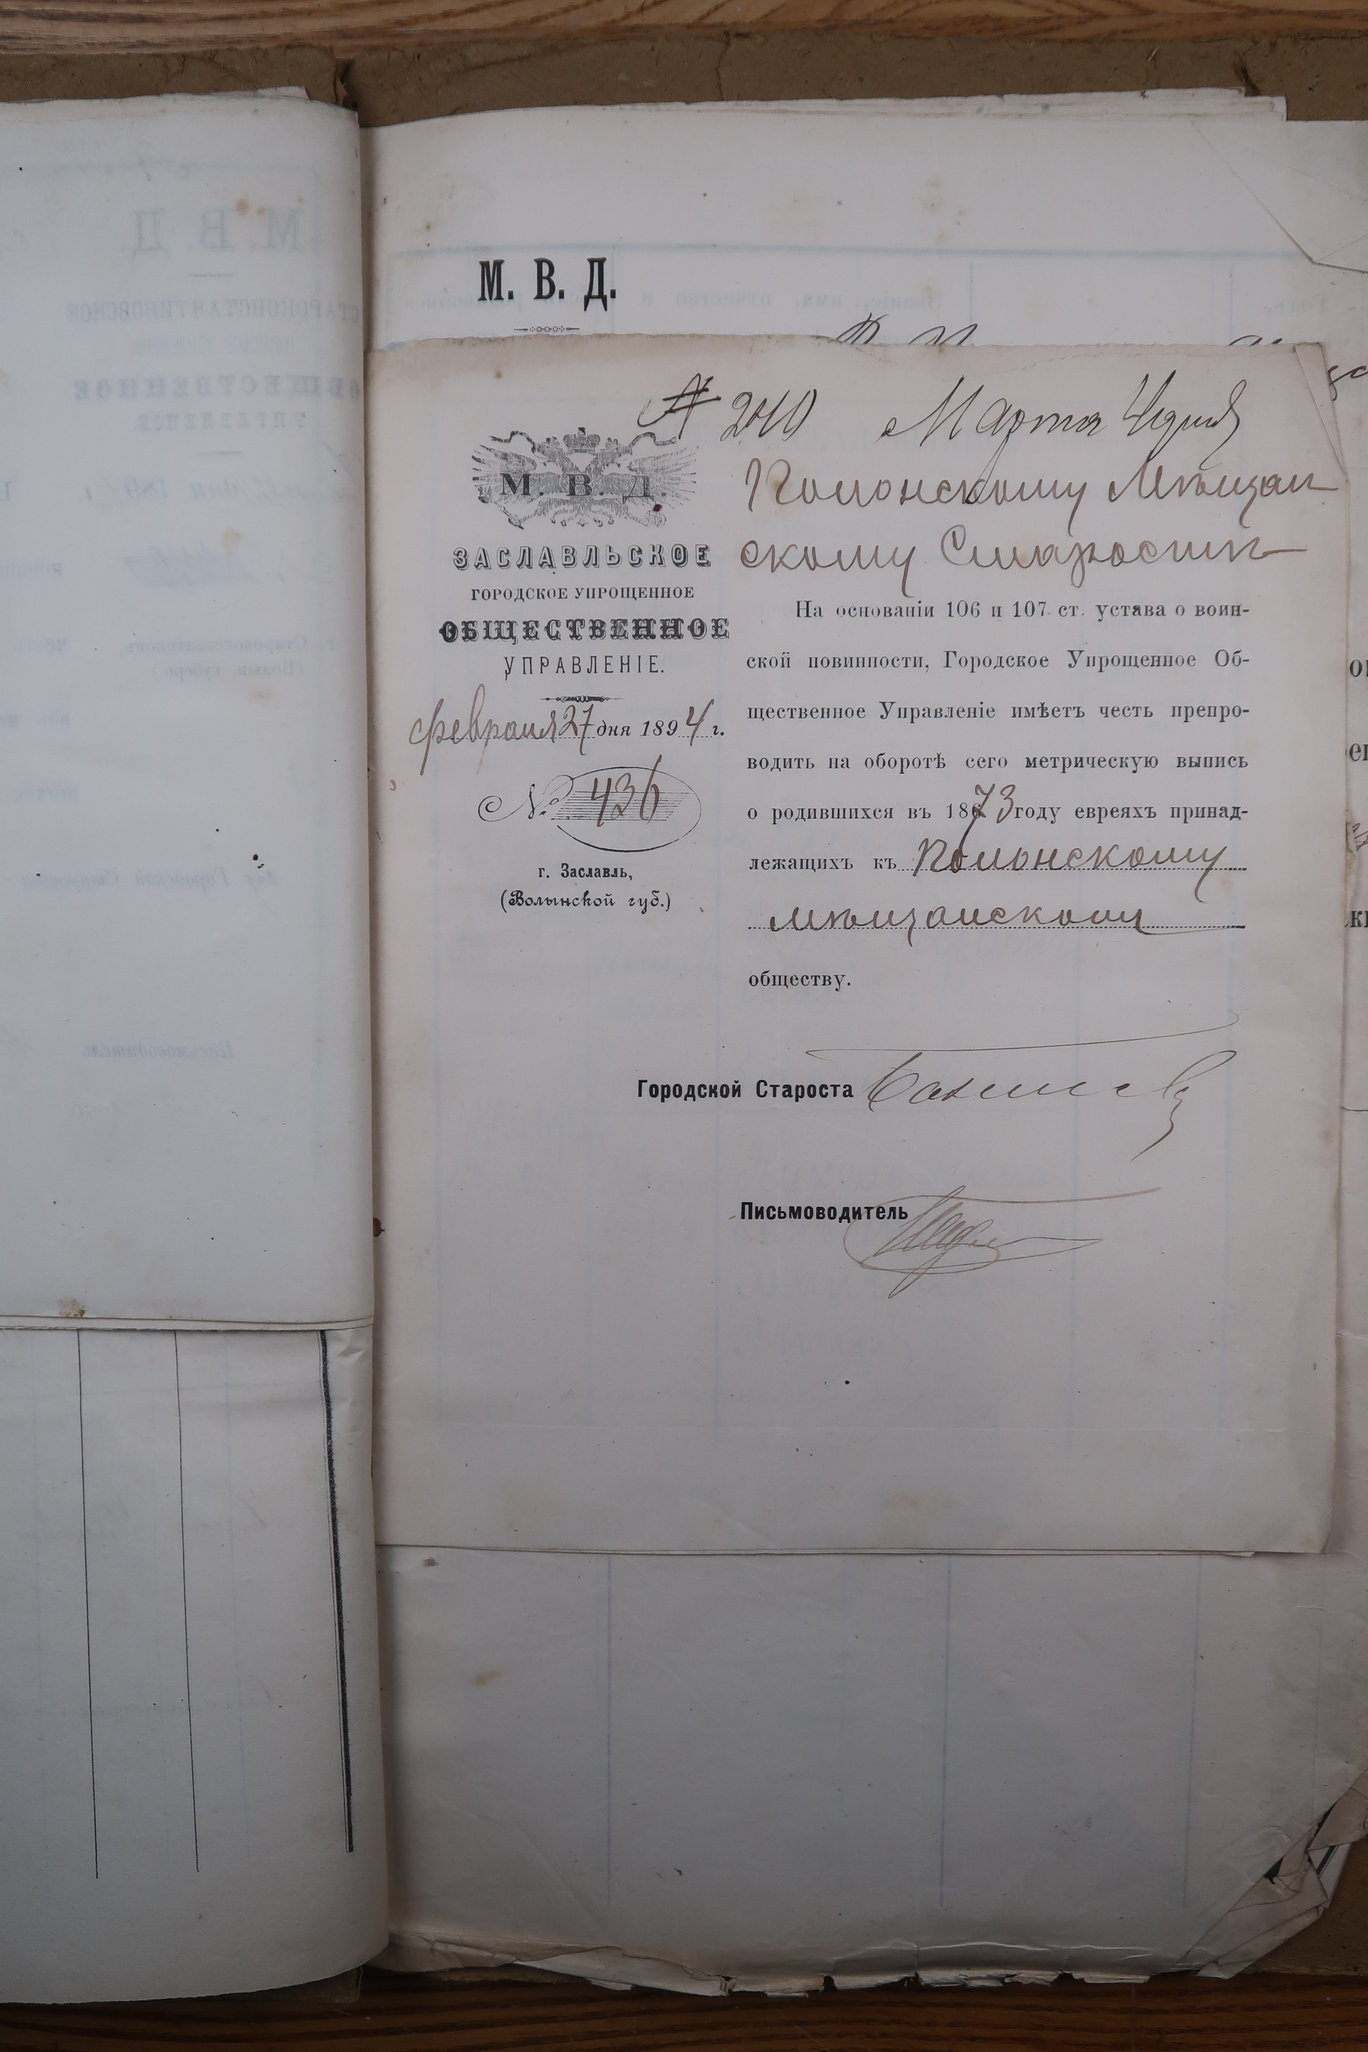 М. В. Д.
№ 240 Марта
М. В. Д.
ЗАСЛАВЛЬСКОЕ
ГОРОДСКОЕ УПРОЩЕННОЕ
ОБЩЕСТВЕННОЕ
УПРАВЛЕНІЕ.
февраля 27 дня 1894 г.
№ 436
г. Заславль,
(Волынской губ.)
Полонскому Мѣщан
скому Старостѣ
На основаніи 106 и 107 ст. устава о воин-
ской повинности, Городское Упрощенное Об-
щественное Управленіе имѣетъ честь препро-
водить на оборотѣ сего метрическую выпись
о родившихся въ 1873 году евреяхъ принад-
лежащихъ къ Полонскому
мѣщанскому
обществу.
Городской Староста
Письмоводитель
М. В. Д.
СТАРОКОНСТАНТИНОВСКОЕ
ОБЩЕСТВЕННОЕ
УПРАВЛЕНІЕ.
Письмоводитель